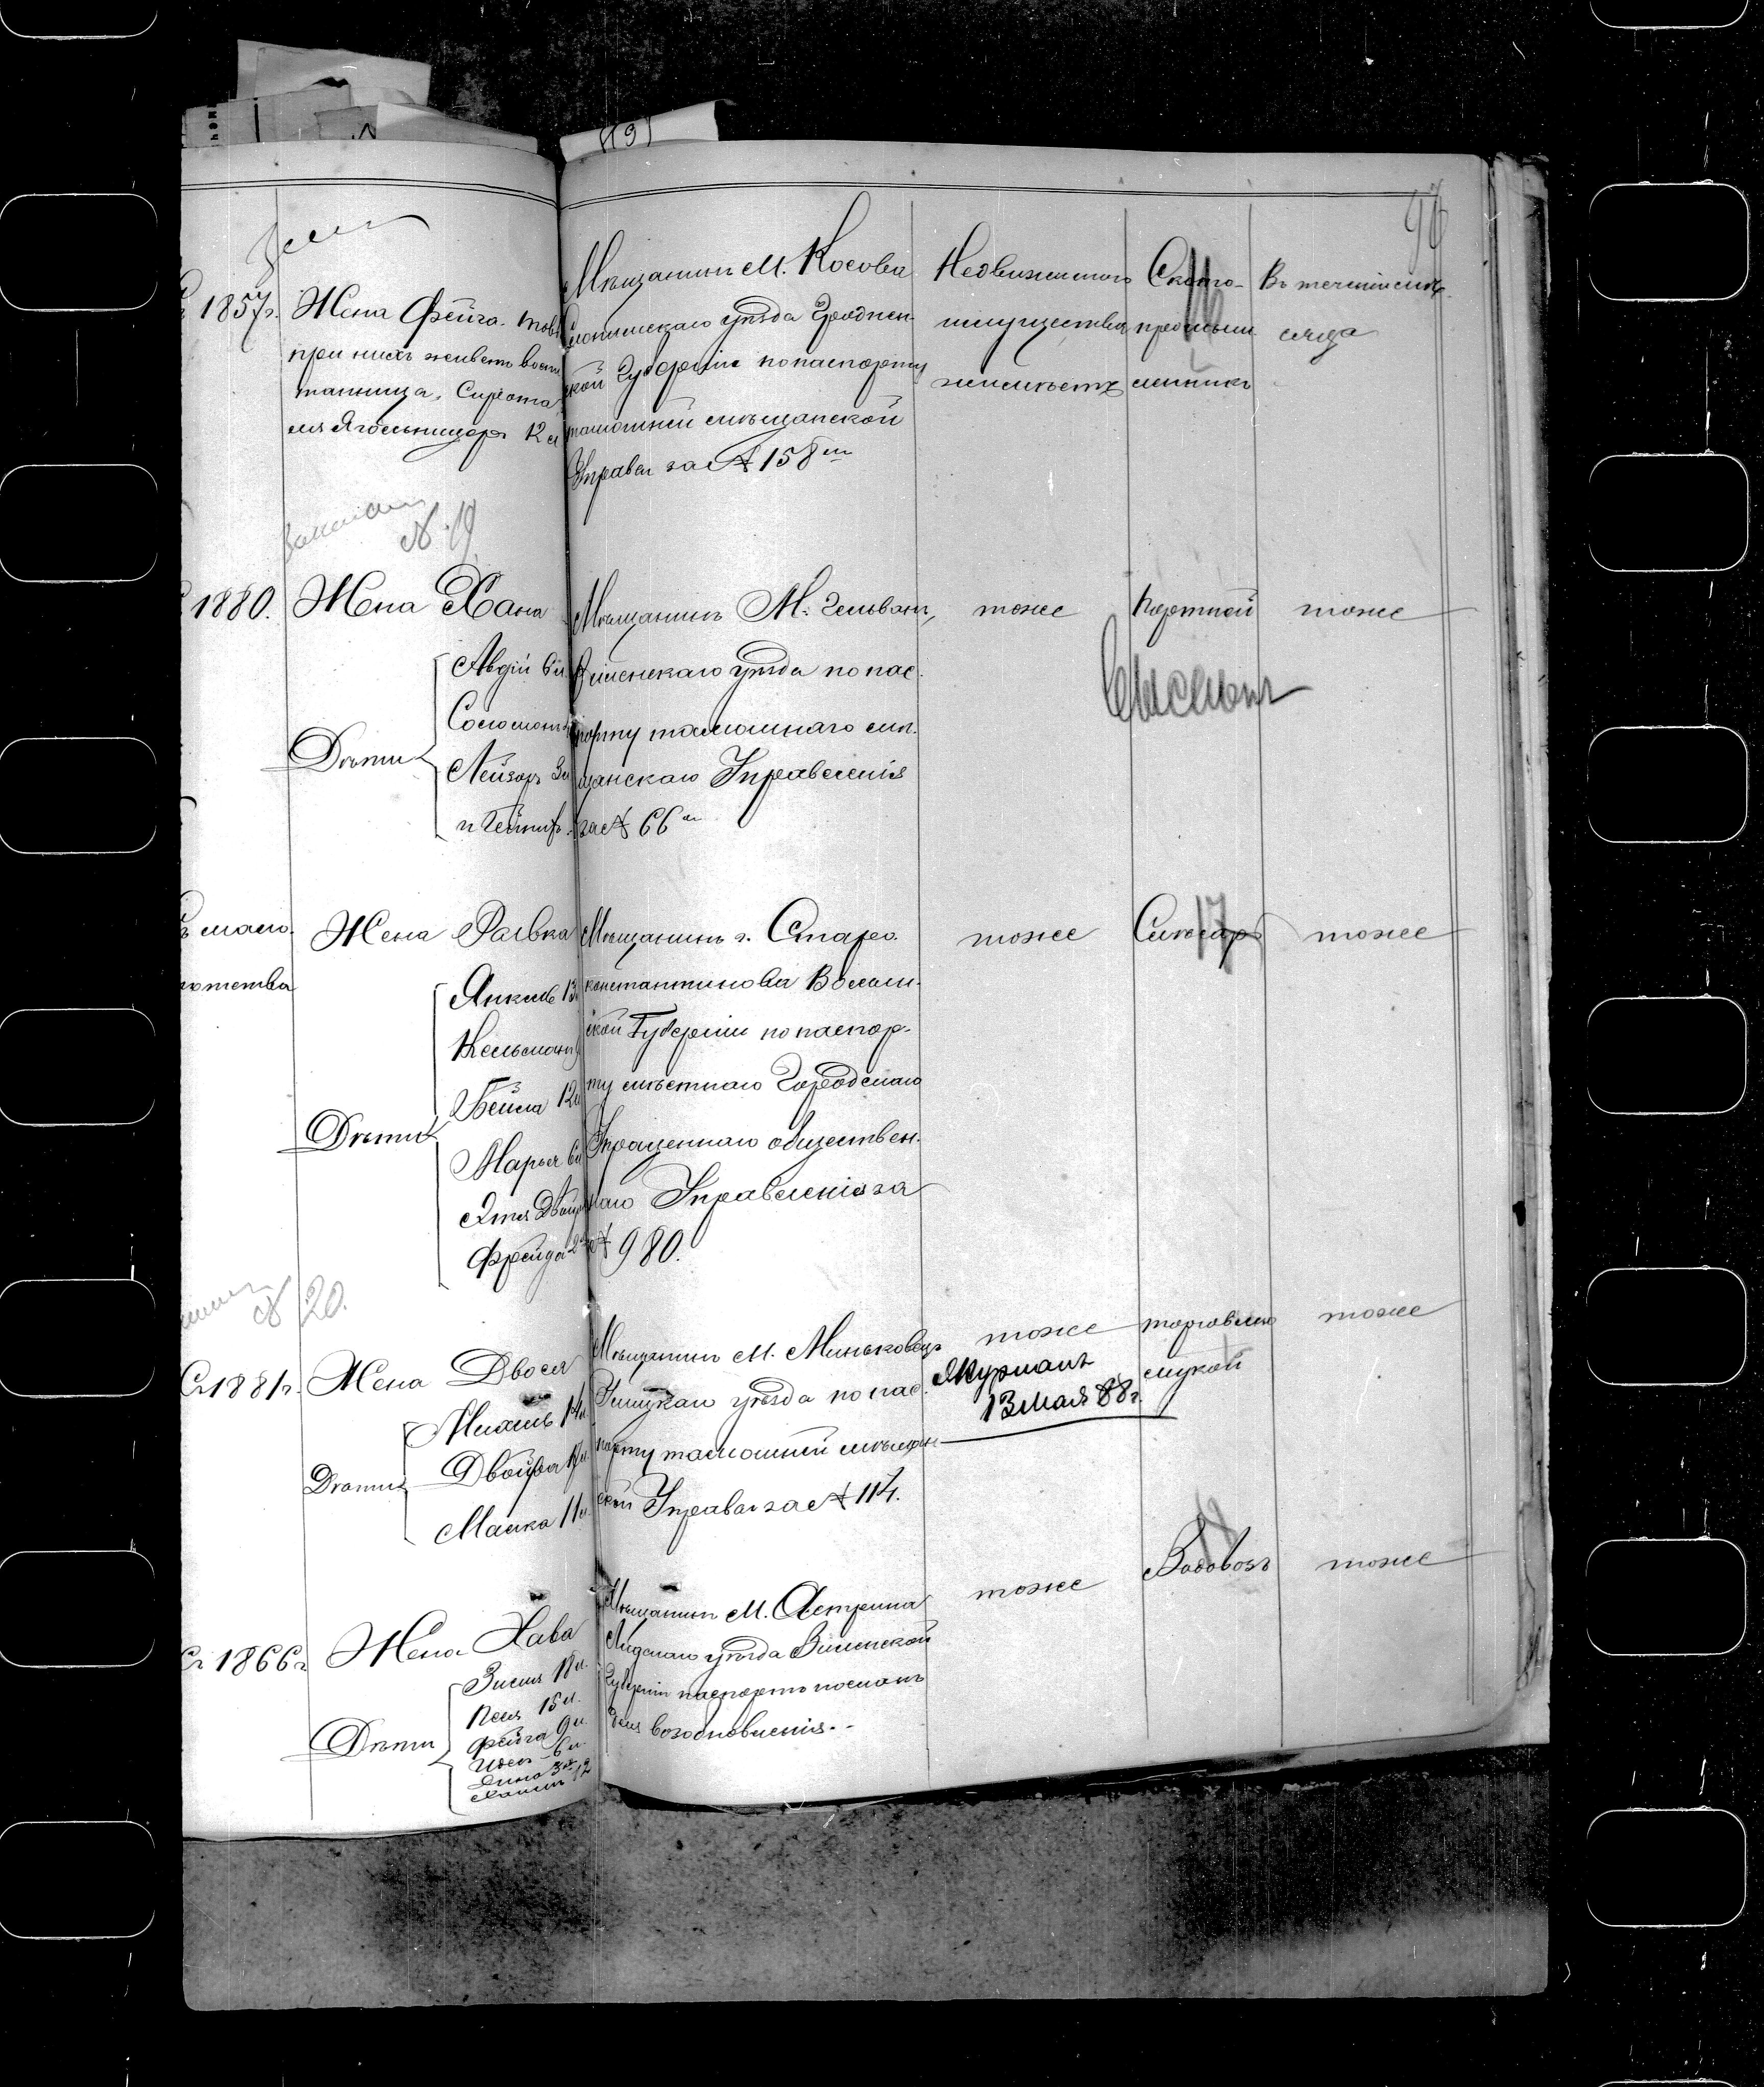 191
98
1857г. Жена Фейга. тов
при нихъ живетъ воспи
танница, Сирота
ля Ягольницеръ 12 л
Мѣщанинъ М. Косова
Слонимскаго уѣзда Гроднен
ской Губерніи по паспорту
тамошней мѣщанской
Управы за № 158 м
Недвижимаго
имущества
неимѣетъ
Ското-
промыш
ленникъ
Въ теченіи мѣ-
сяца
№ 19
1880. Жена Хана
Дѣти
Авдій 6 л
Соломонъ
Лейзоръ 3 л
Мѣщанинъ М. Гельванъ,
Виленскаго уѣзда по пас
порту тамошнаго мѣ
щанскаго Управленія
за № 66 м
тоже
Портной
тоже
17
Съ мало
лѣтства
Жена Ривка
Дѣти
Янкель 13
Кельманъ
Бейла 12 л
Марья 6 л
Этя Двойра
Фрейда 2
Мѣщанинъ г. Старо
константинова Волын
ской Губерніи по паспор-
ту мѣстнаго Городскаго
Упрощеннаго обществен
наго Управленія за
№ 980.
тоже
Слесарь
тоже
№ 20.
Съ 1881г. Жена Двося
Дѣти
Михель 14 л
Двойра 12 л
Малка 11 л
Мѣщанинъ М. Миньковецъ
Ушицкаго уѣзда по пас
порту тамошней мѣщан
ской Управы за № 114.
тоже
13 Мая 88 г.
торговля
мукой
тоже
18
Съ 1866г Жена Хава
Дѣти
Зисля 18 л.
Песя 15 л.
Фейга 9 л
Идель 6 л
Мѣщанинъ М. Астрина
Лидскаго уѣзда Виленской
Губерніи паспортъ посланъ
для возобновленія.-
тоже
Водовозъ
тоже